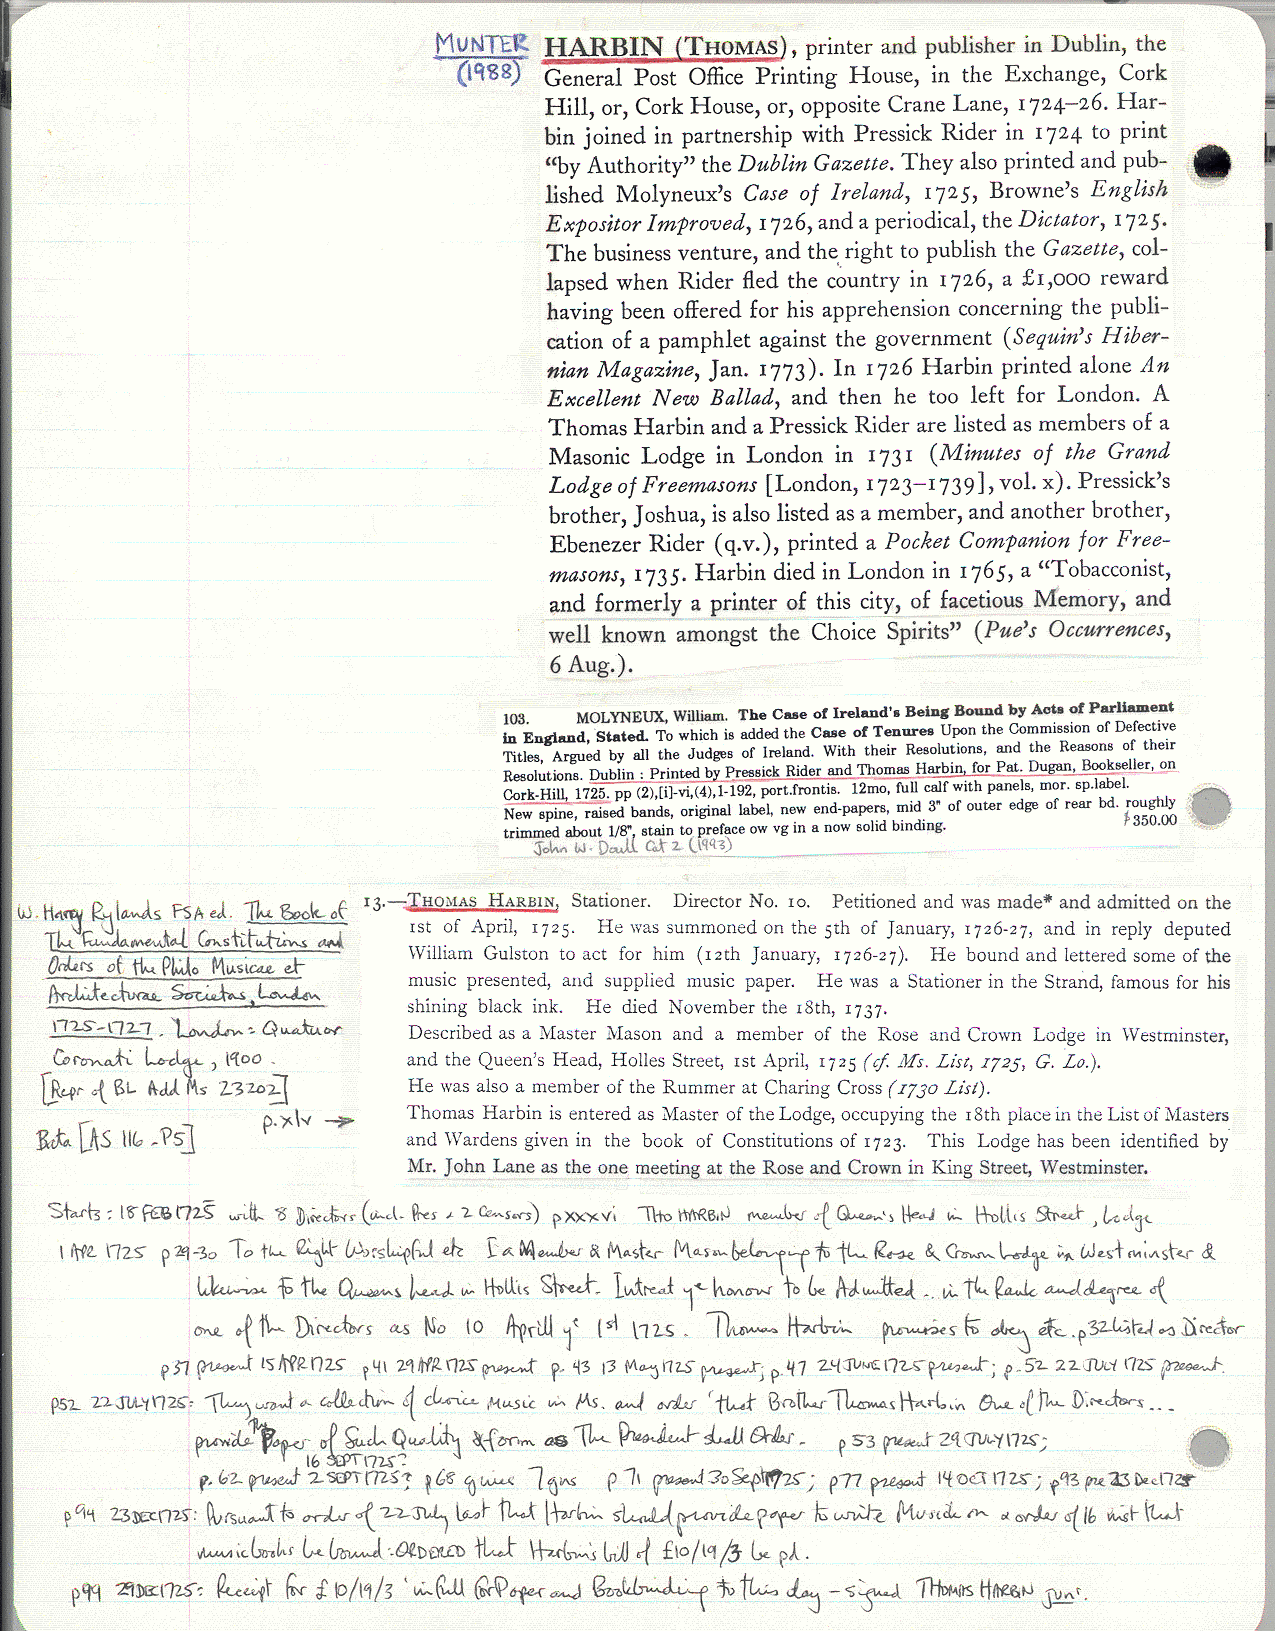 MUNTER
(1988)
HARBIN (THOMAS), printer and publisher in Dublin, the
General Post Office Printing House, in the Exchange, Cork
Hill, or, Cork House, or, opposite Crane Lane, 1724–26. Har-
bin joined in partnership with Pressick Rider in 1724 to print
“by Authority” the Dublin Gazette. They also printed and pub-
lished Molyneux’s Case of Ireland, 1725, Browne’s English
Expositor Improved, 1726, and a periodical, the Dictator, 1725.
The business venture, and the right to publish the Gazette, col-
lapsed when Rider fled the country in 1726, a £1,000 reward
having been offered for his apprehension concerning the publi-
cation of a pamphlet against the government (Sequin’s Hiber-
nian Magazine, Jan. 1773). In 1726 Harbin printed alone An
Excellent New Ballad, and then he too left for London. A
Thomas Harbin and a Pressick Rider are listed as members of a
Masonic Lodge in London in 1731 (Minutes of the Grand
Lodge of Freemasons [London, 1723–1739], vol. x). Pressick’s
brother, Joshua, is also listed as a member, and another brother,
Ebenezer Rider (q.v.), printed a Pocket Companion for Free-
masons, 1735. Harbin died in London in 1765, a “Tobacconist,
and formerly a printer of this city, of facetious Memory, and
well known amongst the Choice Spirits” (Pue’s Occurrences,
6 Aug.).
103. MOLYNEUX, William. The Case of Ireland's Being Bound by Acts of Parliament
in England, Stated. To which is added the Case of Tenures Upon the Commission of Defective
Titles, Argued by all the Judges of Ireland. With their Resolutions, and the Reasons of their
Resolutions. Dublin : Printed by Pressick Rider and Thomas Harbin, for Pat. Dugan, Bookseller, on
Cork-Hill, 1725. pp (2),[i]-vi,(4),1-192, port.frontis. 12mo, full calf with panels, mor. sp.label.
New spine, raised bands, original label, new end-papers, mid 3" of outer edge of rear bd. roughly
trimmed about 1/8", stain to preface ow vg in a now solid binding. $350.00
John W. Doull Cat 2 (1993)
W. Harry Rylands FSA ed. The Book of
The Fundamental Constitutions and
Orders of the Philo Musicae et
Architecturae Societas, London
1725-1727. London: Quatuor
Coronati Lodge, 1900.
[Repr of BL Add Ms 23202]
p.xlv →
Beta [AS 116 .P5]
13.—THOMAS HARBIN, Stationer. Director No. 10. Petitioned and was made* and admitted on the
1st of April, 1725. He was summoned on the 5th of January, 1726-27, and in reply deputed
William Gulston to act for him (12th January, 1726-27). He bound and lettered some of the
music presented, and supplied music paper. He was a Stationer in the Strand, famous for his
shining black ink. He died November the 18th, 1737.
Described as a Master Mason and a member of the Rose and Crown Lodge in Westminster,
and the Queen's Head, Holles Street, 1st April, 1725 (cf. Ms. List, 1725, G. Lo.).
He was also a member of the Rummer at Charing Cross (1730 List).
Thomas Harbin is entered as Master of the Lodge, occupying the 18th place in the List of Masters
and Wardens given in the book of Constitutions of 1723. This Lodge has been identified by
Mr. John Lane as the one meeting at the Rose and Crown in King Street, Westminster.
Starts: 18 FEB 1725 with 8 Directors (incl. Pres & 2 Censors) p xxxvi THO HARBIN member of Queen's Head in Hollis Street, Lodge
1 APR 1725 p 29-30 To the Right Worshipful etc I a Member & Master Mason belonging to the Rose & Crown Lodge in Westminster &
likewise to the Queens head in Hollis Street. Intreat ye honour to be Admitted .. in the Rank and degree of
one of the Directors as No 10 Aprill ye 1st 1725. Thomas Harbin promises to obey etc. p 32 listed as Director
p 37 present 15 APR 1725 p 41 29 APR 1725 present p. 43 13 May 1725 present; p. 47 24 JUNE 1725 present; p. 52 22 JULY 1725 present.
p52 22 JULY 1725: They want a collection of choice Music in Ms. and order 'that Brother Thomas Harbin One of the Directors ...
provide The Paper of Such Quality & form as The President shall Order. p 53 present 29 JULY 1725;
16 SEPT 1725?
p. 62 present 2 SEPT 1725? p 68 gives 7 gns p 71 present 30 Sept 1725; p 77 present 14 OCT 1725; p 93 pre 23 Dec 1725
p 94 23 DEC 1725: Pursuant to order of 22 July last that Harbin should provide paper to write Musick on & order of 16 inst that
music books be bound: ORDERED that Harbin's bill of £10/19/3 be pd.
p 99 29 DEC 1725: Receipt for £10/19/3 'in full for Paper and Bookbinding to this day – signed THOMAS HARBIN junr.